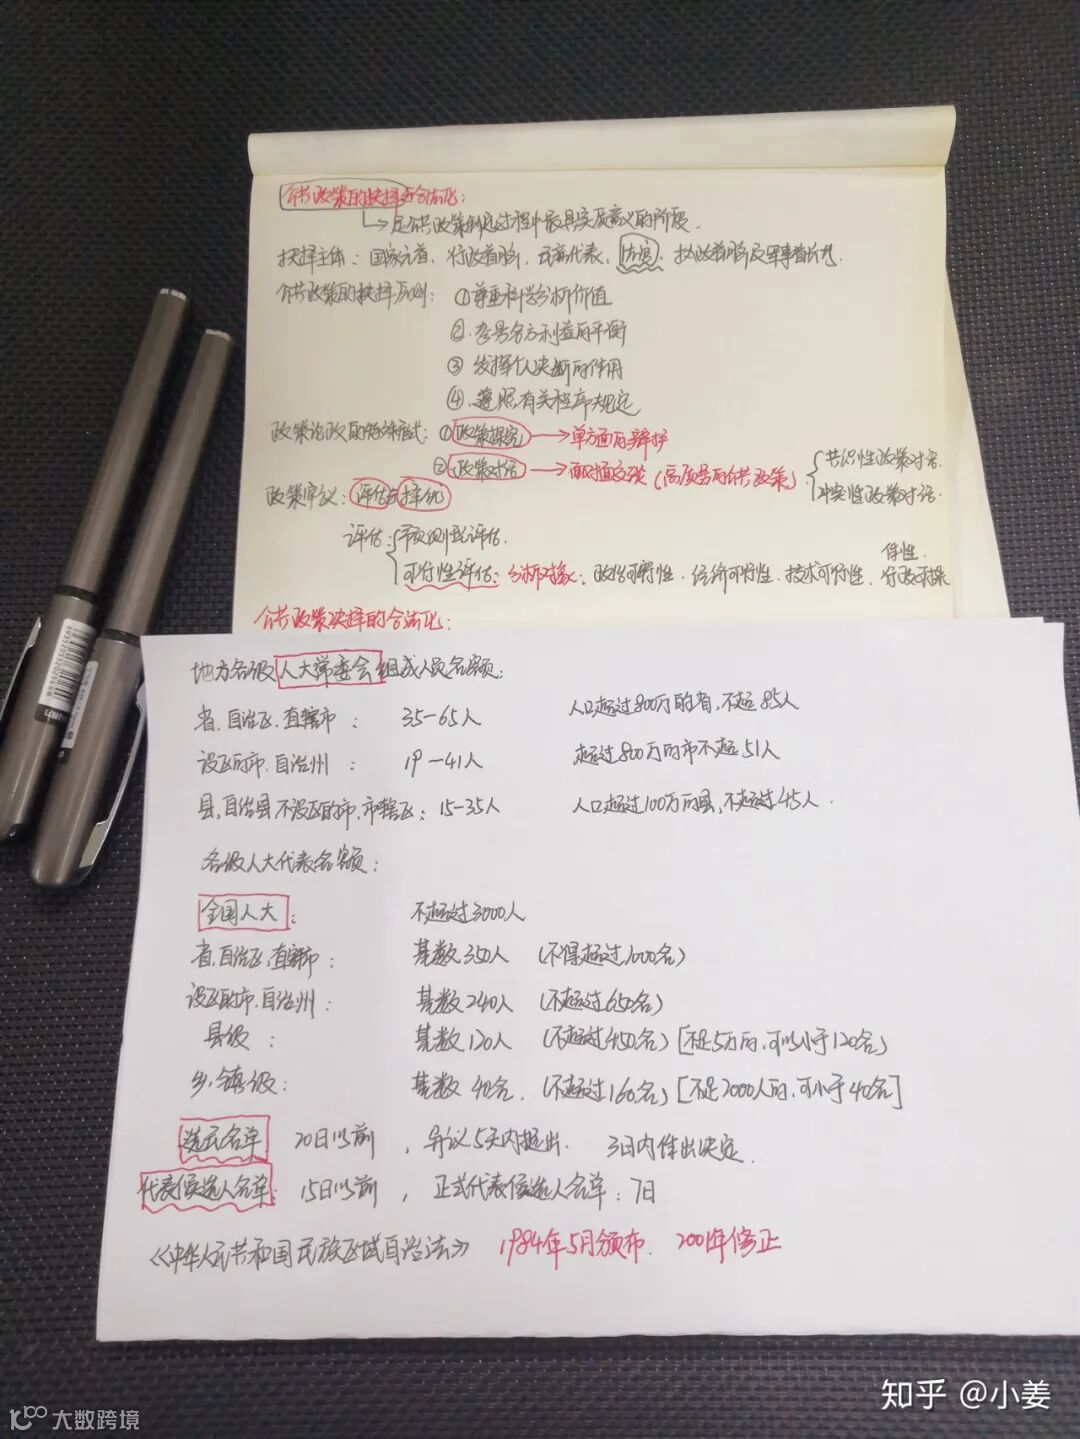 公共政策的抉择与合法化:
↳是公共政策制定过程中最具实质意义的阶段.
抉择主体: 国家元首、行政首脑、民意代表、法官、执政首脑及军事首长.
公共政策的抉择原则: ①尊重科学分析价值
②考虑各方利益的平衡
③发挥个人决断的作用
④遵照有关程序规定
政策论政的特殊形式: ①政策探究→单方面的辩护
②政策对话→面对面交谈(高质量的公共政策) 共识性政策对话.
冲突性政策对话.
政策审议: 评估与择优
评估: 预测性评估.
可行性评估: 分析对象: 政治可行性、经济可行性、技术可行性、行政可操作性.
公共政策抉择的合法化:
地方各级人大常委会组成人员名额:
省、自治区、直辖市: 35-65人 人口超过8000万的省,不超85人
设区的市、自治州: 19-41人 超过800万的市不超51人
县、自治县、不设区的市、市辖区: 15-35人 人口超过100万的县,不超过45人.
各级人大代表名额:
全国人大: 不超过3000人
省、自治区、直辖市: 基数350人 (不得超过1000名)
设区的市、自治州: 基数240人 (不超过650名)
县级: 基数120人 (不超过450名) [不足5万的,可以小于120名]
乡、镇级: 基数40名. (不超过160名) [不足2000人的,可小于40名]
选民名单 20日以前, 异议5天内提出. 3日内作出决定.
代表候选人名单: 15日以前, 正式代表候选人名单: 7日
《中华人民共和国民族区域自治法》 1984年5月颁布. 2001年修正
知乎 @小姜
大数跨境